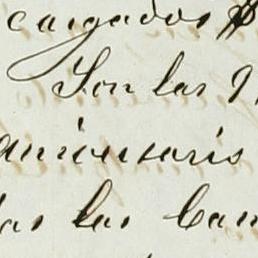 cargados
Son las 9
aniversario
las las Cam